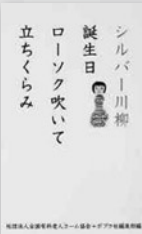 シルバー川柳
誕生日
ローソク吹いて
立ちくらみ
社団法人全国有料老人ホーム協会＋ポプラ社編集部編